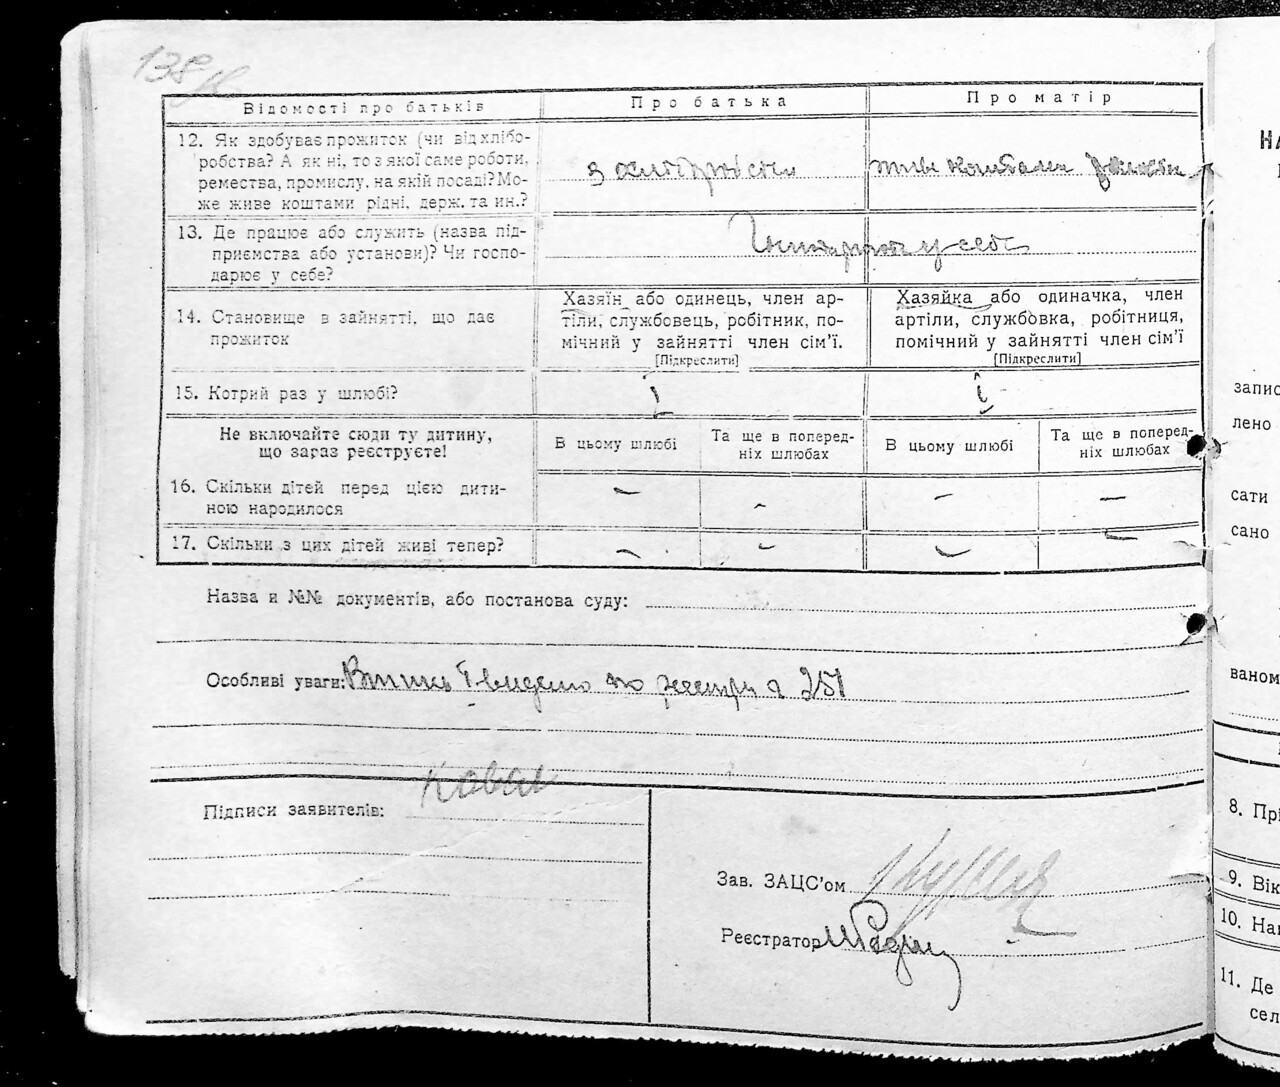 138
Відомості про батьків
Про батька
Про матір
12. Як здобуває прожиток (чи від хлібо-
робства? А як ні, то з якої саме роботи,
ремества, промислу, на якій посаді? Мо-
же живе коштами рідні, держ. та ин.?
13. Де працює або служить (назва під-
приємства або установи)? Чи госпо-
дарює у себе?
у себе
14. Становище в зайнятті, що дає
прожиток
Хазяїн або одинець, член ар-
тіли, службовець, робітник, по-
мічний у зайнятті член сім’ї.
[Підкреслити]
Хазяйка або одиначка, член
артіли, службовка, робітниця,
помічний у зайнятті член сім’ї
[Підкреслити]
15. Котрий раз у шлюбі?
Не включайте сюди ту дитину,
що зараз реєструєте!
В цьому шлюбі
Та ще в поперед-
ніх шлюбах
В цьому шлюбі
Та ще в поперед-
ніх шлюбах
16. Скільки дітей перед цією дити-
ною народилося
–
–
–
–
17. Скільки з цих дітей живі тепер?
–
–
–
–
Назва и №№ документів, або постанова суду:
Особливі уваги: по 251
Підписи заявителів: Ковал
Зав. ЗАЦС’ом
Реєстратор
НА
запис
лено
сати
сано
ваном
8. Прі
9. Вік
10. На
11. Де
сел